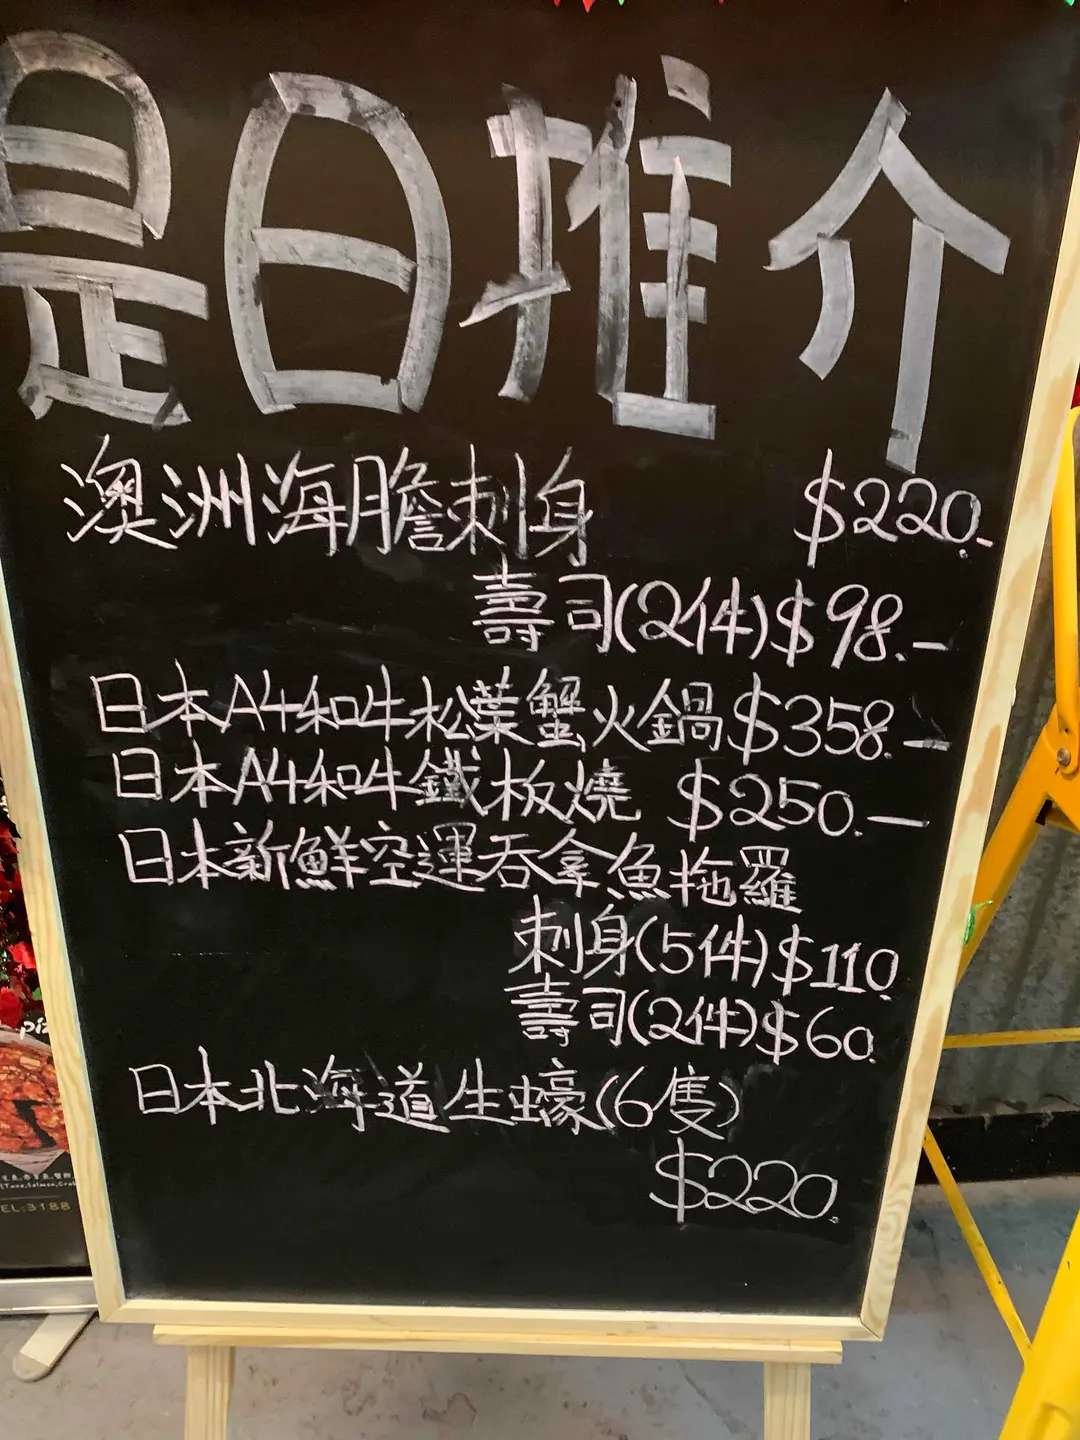 是日推介
澳洲海膽刺身 $220.-
壽司(2件)$98.-
日本A4和牛松葉蟹火鍋$358.-
日本A4和牛鐵板燒 $250.-
日本新鮮空運吞拿魚拖羅
刺身(5件)$110.
壽司(2件)$60.
日本北海道生蠔(6隻)
$220.
(Tuna,Salmon,Crab
TEL:3188